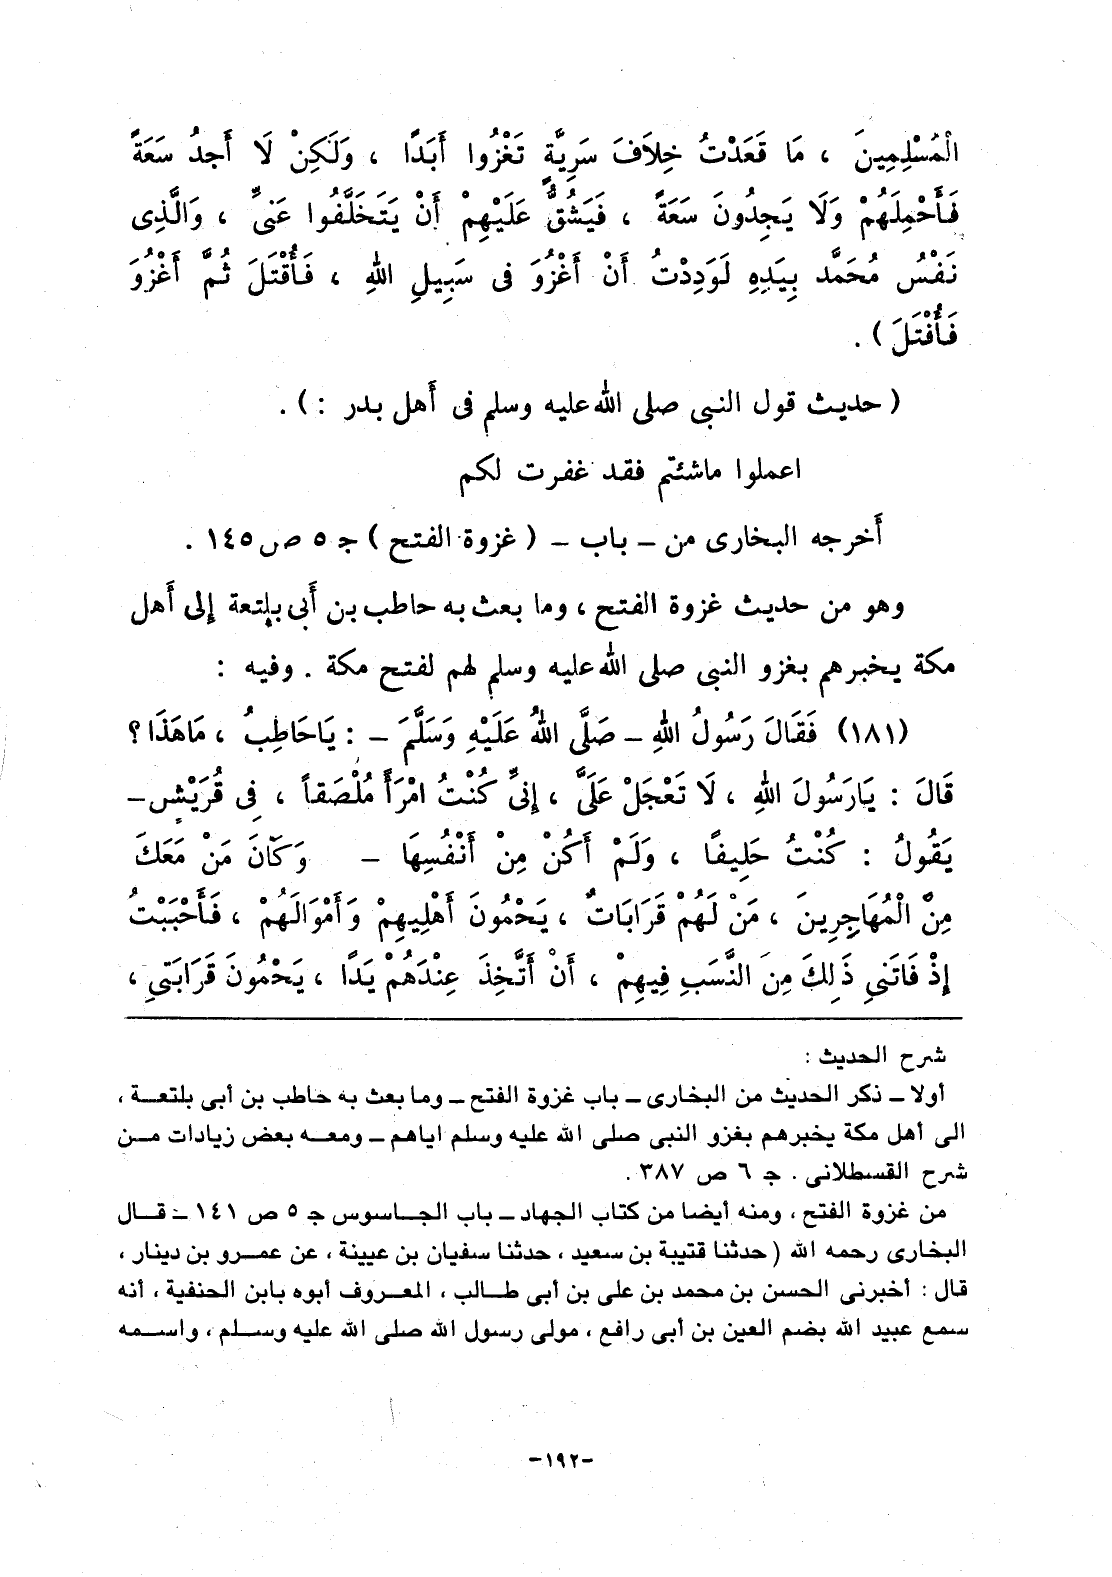 الْمُسْلِمِينَ ، مَا قَعَدْتُ خِلاَفَ سَرِيَّةٍ تَغْزُوا أَبَدًا ، وَلَكِنْ لَا أَجِدُ سَعَةً
فَأَحْمِلَهُمْ وَلَا يَجِدُونَ سَعَةً ، فَيَشُقُّ عَلَيْهِمْ أَنْ يَتَخَلَّفُوا عَنىِّ ، وَالَّذِى
نَفْسُ مُحَمَّد بِيَدِهِ لَوَدِدْتُ أَنْ أَغْزُوَ فى سَبِيلِ اللهِ ، فَأُقْتَلَ ثُمَّ أَغْزُوَ
فَأُقْتَلَ ) .
( حديث قول النبى صلى الله عليه وسلم فى أَهل بدر : ) .
اعملوا ماشئتم فقد غفرت لكم
أَخرجه البخارى من – باب – ( غزوة الفتح ) جـ ٥ ص ١٤٥ .
وهو من حديث غزوة الفتح ، وما بعث به حاطب بن أَبى بلتعة إلى أَهل
مكة يخبرهم بغزو النبى صلى الله عليه وسلم لهم لفتح مكة . وفيه :
(١٨١) فَقَالَ رَسُولُ اللهِ – صَلَّى اللهُ عَلَيْهِ وَسَلَّمَ – : يَاحَاطِبُ ، مَاهَذَا ؟
قَالَ : يَارَسُولَ اللهِ ، لَا تَعْجَلْ عَلَىَّ ، إِنىِّ كُنْتُ امْرَأً مُلْصَقاً ، فِى قُرَيْشٍ –
يَقُولُ : كُنْتُ حَلِيفًا ، وَلَمْ أَكُنْ مِنْ أَنْفُسِهَا – وَكَانَ مَنْ مَعَكَ
مِنَ الْمُهَاجِرِينَ ، مَنْ لَهُمْ قَرَابَاتٌ ، يَحْمُونَ أَهْلِيهِمْ وَأَمْوَالَهُمْ ، فَأَحْبَبْتُ
إِذْ فَاتَنِي ذَلِكَ مِنَ النَّسَبِ فِيهِمْ ، أَنْ أَتَّخِذَ عِنْدَهُمْ يَدًا ، يَحْمُونَ قَرَابَتِي ،
شرح الحديث :
أولا – ذكر الحديث من البخارى – باب غزوة الفتح – وما بعث به حاطب بن أبى بلتعـة ،
الى أهل مكة يخبرهم بغزو النبى صلى الله عليه وسلم اياهم – ومعـه بعض زيادات مـن
شرح القسطلانى . جـ ٦ ص ٣٨٧ .
من غزوة الفتح ، ومنه أيضا من كتاب الجهاد – باب الجـاسوس جـ ٥ ص ١٤١ – قـال
البخارى رحمه الله (حدثنا قتيبة بن سعيد ، حدثنا سفيان بن عيينة ، عن عمـرو بن دينار ،
قال : أخبرنى الحسن بن محمد بن على بن أبى طـالب ، المعـروف أبوه بابن الحنفية ، أنه
سمع عبيد الله بضم العين بن أبى رافع ، مولى رسول الله صلى الله عليه وسـلم ، واسـمه
-١٩٢-